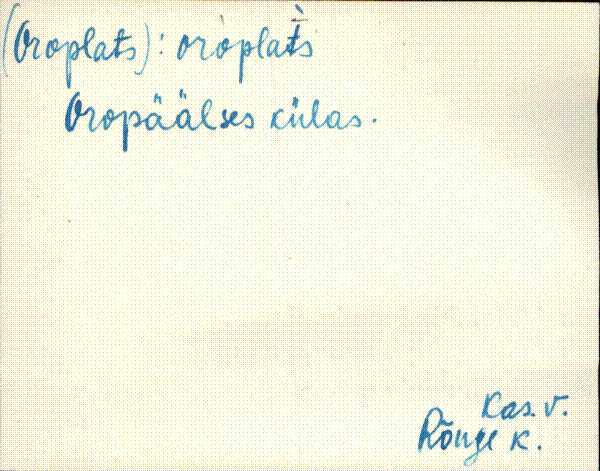 (Oroplats): oroplat̀s
Oropäälses külas.
Kas. v.
Rõuge k.